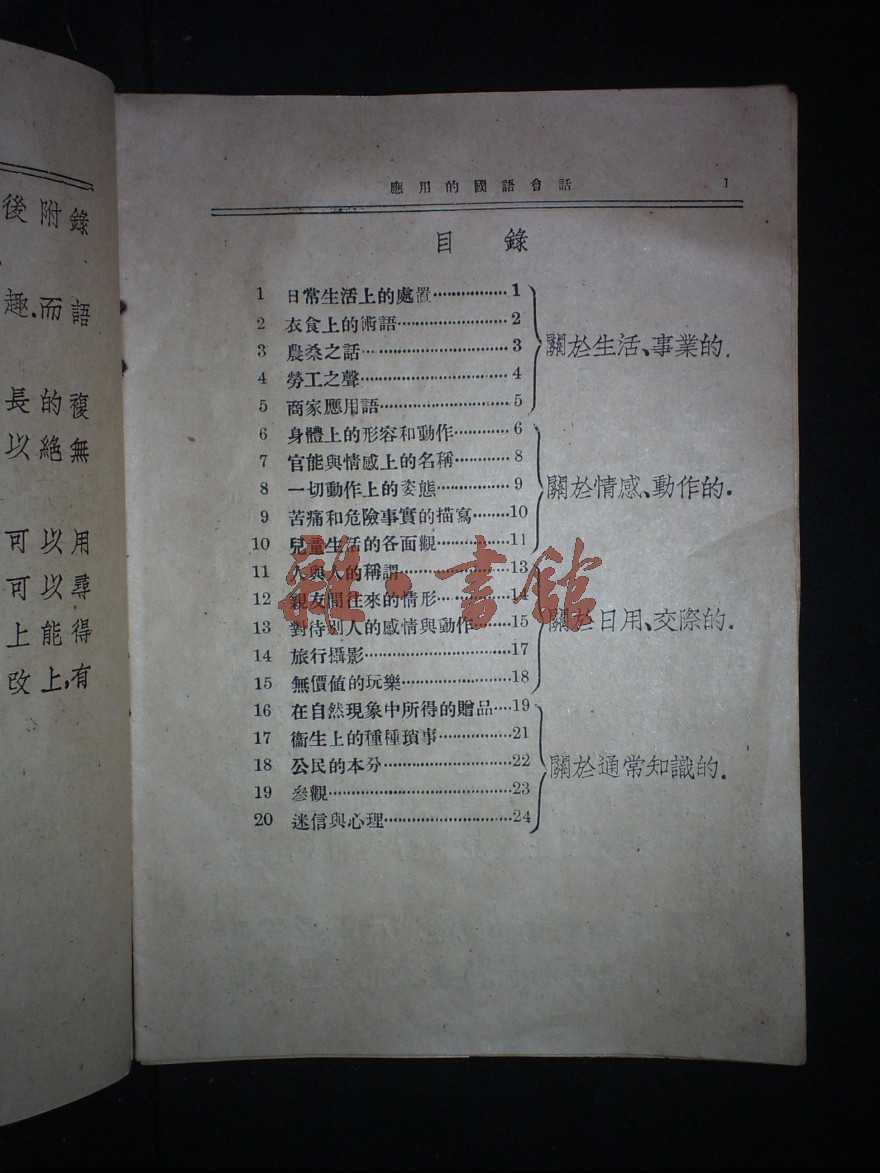 後附錄
趣.而語
長的複
以絕無
可以用
可以尋
上能得
改上,有
應用的國語會話 1
目錄
1 日常生活上的處置………………1
2 衣食上的術語………………2
3 農桑之話………………3
4 勞工之聲………………4
5 商家應用語………………5
關於生活、事業的.
6 身體上的形容和動作…………6
7 官能與情感上的名稱…………8
8 一切動作上的姿態…………9
9 苦痛和危險事實的描寫……10
10 兒童生活的各面觀…………11
關於情感、動作的.
11 人與人的稱謂………………13
12 親友間往來的情形…………14
13 對待別人的感情與動作……15
14 旅行攝影………………17
15 無價值的玩樂………………18
關於日用、交際的.
16 在自然現象中所得的贈品…19
17 衞生上的種種瑣事…………21
18 公民的本分………………22
19 參觀………………23
20 迷信與心理………………24
關於通常知識的.
雜·書館